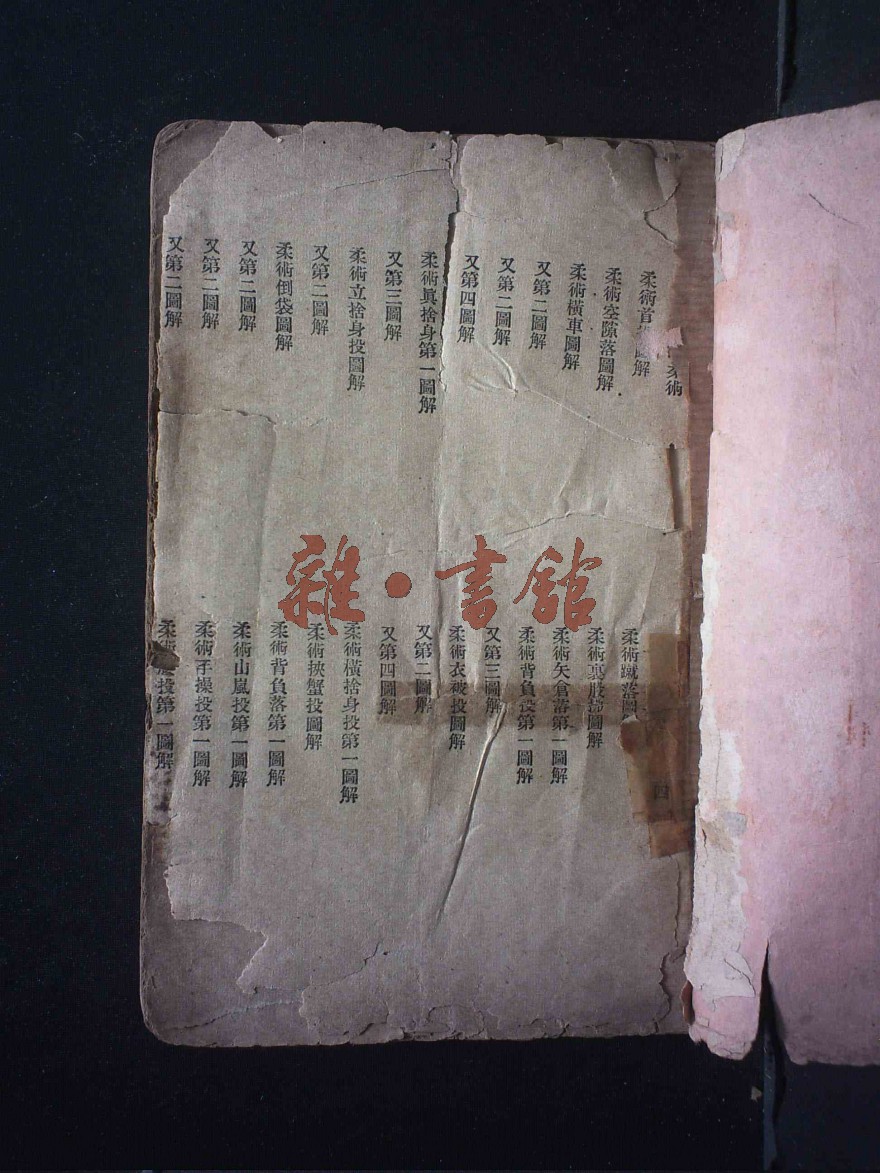 柔術
柔術首圖解
柔術空隙落圖解
柔術橫車圖解
又第二圖解
又第二圖解
又第四圖解
柔術眞捨身第一圖解
又第三圖解
柔術立捨身投圖解
又第二圖解
柔術倒袋圖解
又第二圖解
又第二圖解
又第二圖解
四
柔術蹴落圖
柔術裏股圖解
柔術矢倉落第一圖解
柔術背負投第一圖解
又第三圖解
柔術衣被投圖解
又第二圖解
又第四圖解
柔術橫捨身投第一圖解
柔術挾蟹投圖解
柔術背負落第一圖解
柔術山嵐投第一圖解
柔術手操投第一圖解
柔術投第一圖解
雜·書館